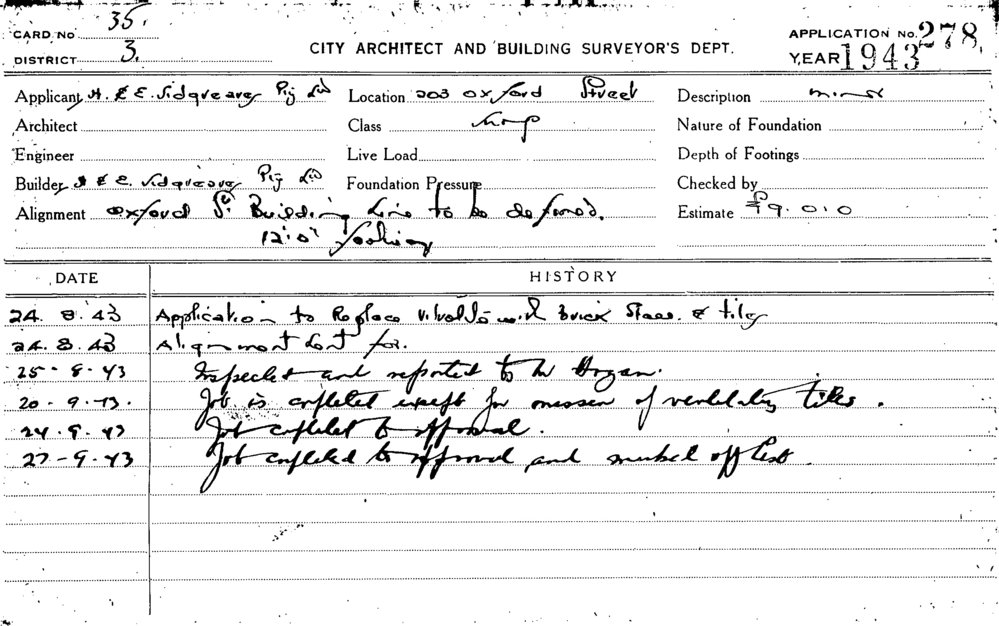 CARD No 35.
DISTRICT 3.
CITY ARCHITECT AND BUILDING SURVEYOR'S DEPT.
APPLICATION No. 278
YEAR 1943
Applicant A. & E. Sidgreaves Pty Ltd Location 203 Oxford Street Description minor
Architect Class Shop Nature of Foundation
Engineer Live Load Depth of Footings
Builder A & E. Sidgreaves Pty Ltd Foundation Pressure Checked by
Alignment Oxford St. Building Line to be defined. Estimate £9.0.0
12'.0" footway
DATE HISTORY
24. 8. 43 Application to Replace with Brick & tiles
24. 8. 43 Alignment sent for.
25 - 8 - 43 Inspected and reported to Mr Hogan.
20 - 9 - 43. Job is completed except for omission of ventilating tiles.
24 - 9 - 43 Job completed to approval.
27 - 9 - 43 Job completed to approval and marked off list.